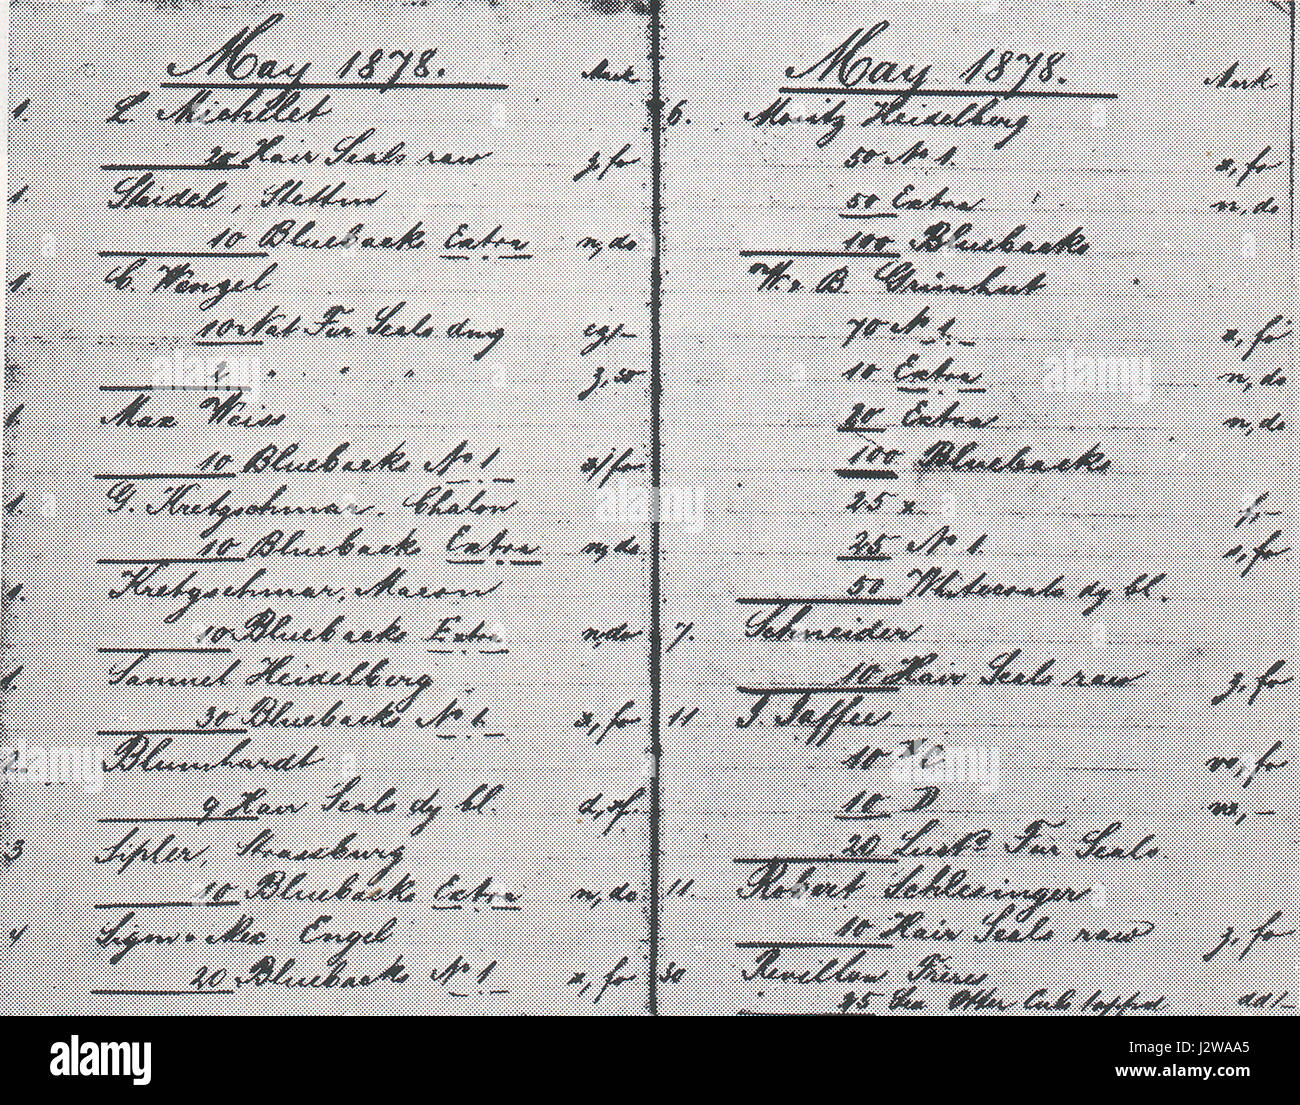 May 1878.
Mark
1. L. Michelet
20 Hair Seals raw z, fo
1. Steidel, Stettin
10 Bluebacks Extra n, do
1. C. Wengel
10 Nat Fur Seals
" " " z, so
1. Max Weiss
10 Bluebacks No 1 x, fo
1. G. Kretzschmar, Chalon
10 Bluebacks Extra n, do
1. Kretzschmar, Macon
10 Bluebacks Extra n, do
1. Samuel Heidelberg
30 Bluebacks No 1. x, fo
2. Blumhardt
9 Hair Seals dy bl.
3 Sipler, Strassburg
10 Bluebacks Extra n, do
4 Sigm & Alex. Engel
20 Bluebacks No 1 x, fo
May 1878.
Mark
6. Moritz Heidelberg
50 No 1. x, fo
50 Extra n, do
100 Bluebacks
W. & B. Grünhut
70 No 1. x, fo
10 Extra n, do
20 Extra n, do
100 Bluebacks
25 x f,-
25 No 1. s, fo
50 Whitecoats dy bl.
7. Schneider
10 Hair Seals raw z, fo
11 S. Jaffee
10
10 D
20 Fur Seals.
11. Robert Schlesinger
10 Hair Seals raw z, fo
30 Revillon Frères
Sea Otter Cub
alamy
Image ID: J2WAA5
www.alamy.com